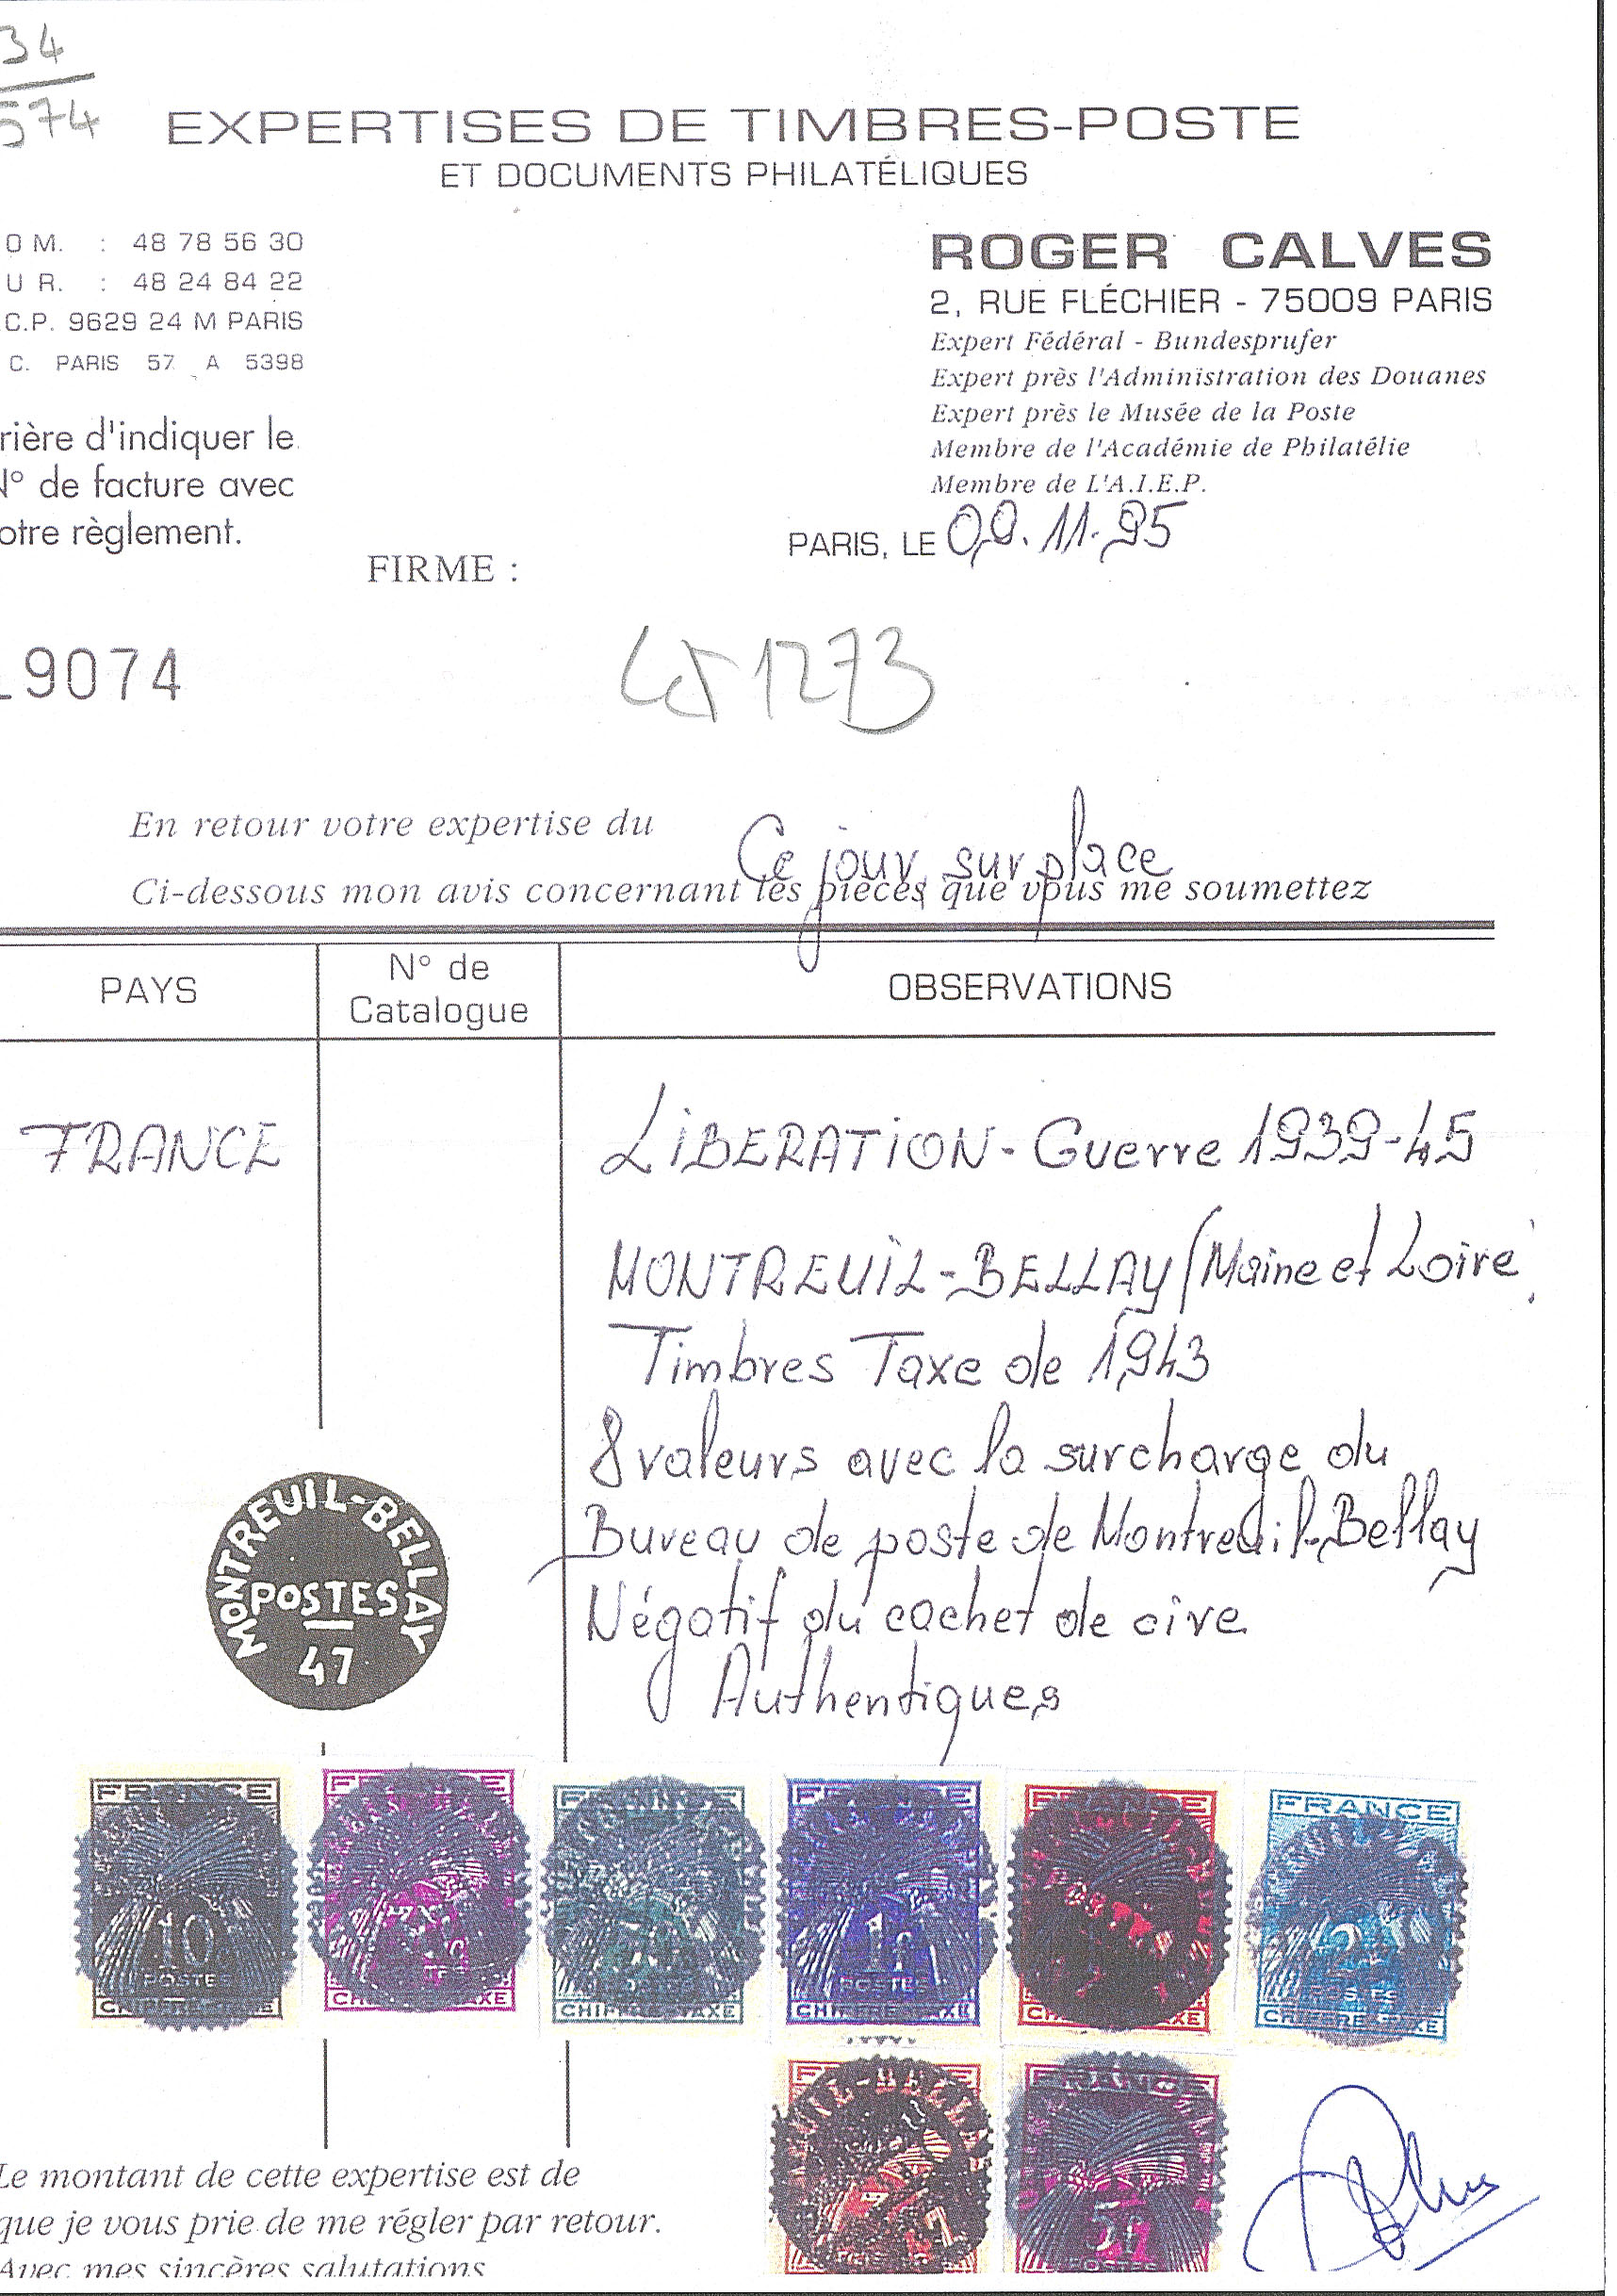 34
574
EXPERTISES DE TIMBRES-POSTE
ET DOCUMENTS PHILATÉLIQUES
OM. : 48 78 56 30
UR. : 48 24 84 22
.C.P. 9629 24 M PARIS
C. PARIS 57 A 5398
rière d'indiquer le
N° de facture avec
otre règlement.
ROGER CALVES
2, RUE FLÉCHIER - 75009 PARIS
Expert Fédéral - Bundesprufer
Expert près l'Administration des Douanes
Expert près le Musée de la Poste
Membre de l'Académie de Philatélie
Membre de L'A.I.E.P.
PARIS, LE 09.11.95
FIRME :
19074
1273
En retour votre expertise du Ce jour sur place
Ci-dessous mon avis concernant les pièces que vous me soumettez
PAYS
N° de
Catalogue
OBSERVATIONS
FRANCE
LIBERATION - Guerre 1939-45
MONTREUIL-BELLAY (Maine et Loire)
Timbres Taxe de 1943
8 valeurs avec la surcharge du
Bureau de poste de Montreuil-Bellay
Négatif du cachet de cire
Authentiques
MONTREUIL-BELLAY
POSTES
47
FRANCE
10
POSTES
CHIFFRE-TAXE
CHIFFRE-TAXE
FRANCE
CHIFFRE-TAXE
FRANCE
1f
POSTES
CHIFFRE-TAXE
FRANCE
FRANCE
2f
POSTES
CHIFFRE-TAXE
UIL-BELLA
FRANCE
5f
POSTES
Le montant de cette expertise est de
que je vous prie de me régler par retour.
Avec mes sincères salutations